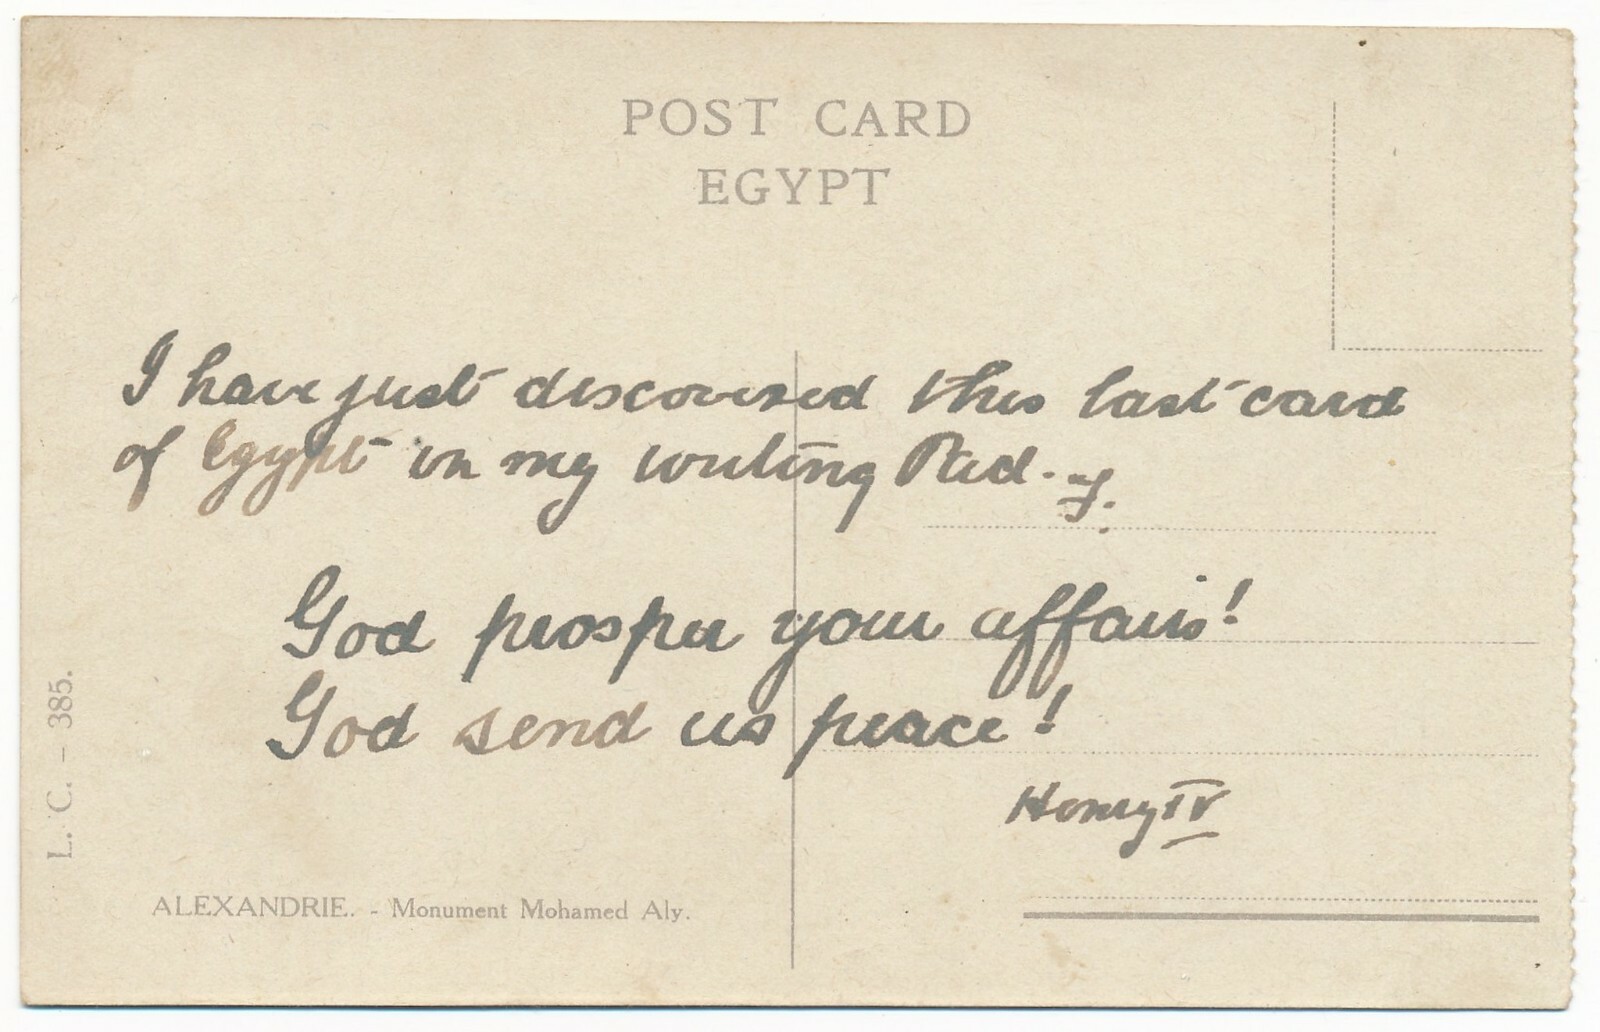 POST CARD
EGYPT
I have just discovered this last card
of Egypt in my writing Pad. - J.
God prosper your affairs!
God send us peace!
Henry IV
L. C. - 385.
ALEXANDRIE. - Monument Mohamed Aly.